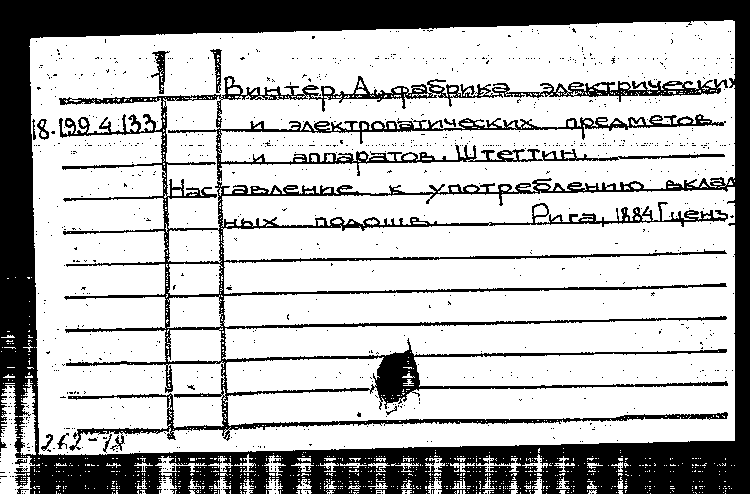 Винтер, А., фабрика электрических
18.199.4.133 и электропатических предметов
и аппаратов. Штеттин.
Наставление к употреблению вклад
ных подошв. Рига, 1884 [ценз.]
262-78